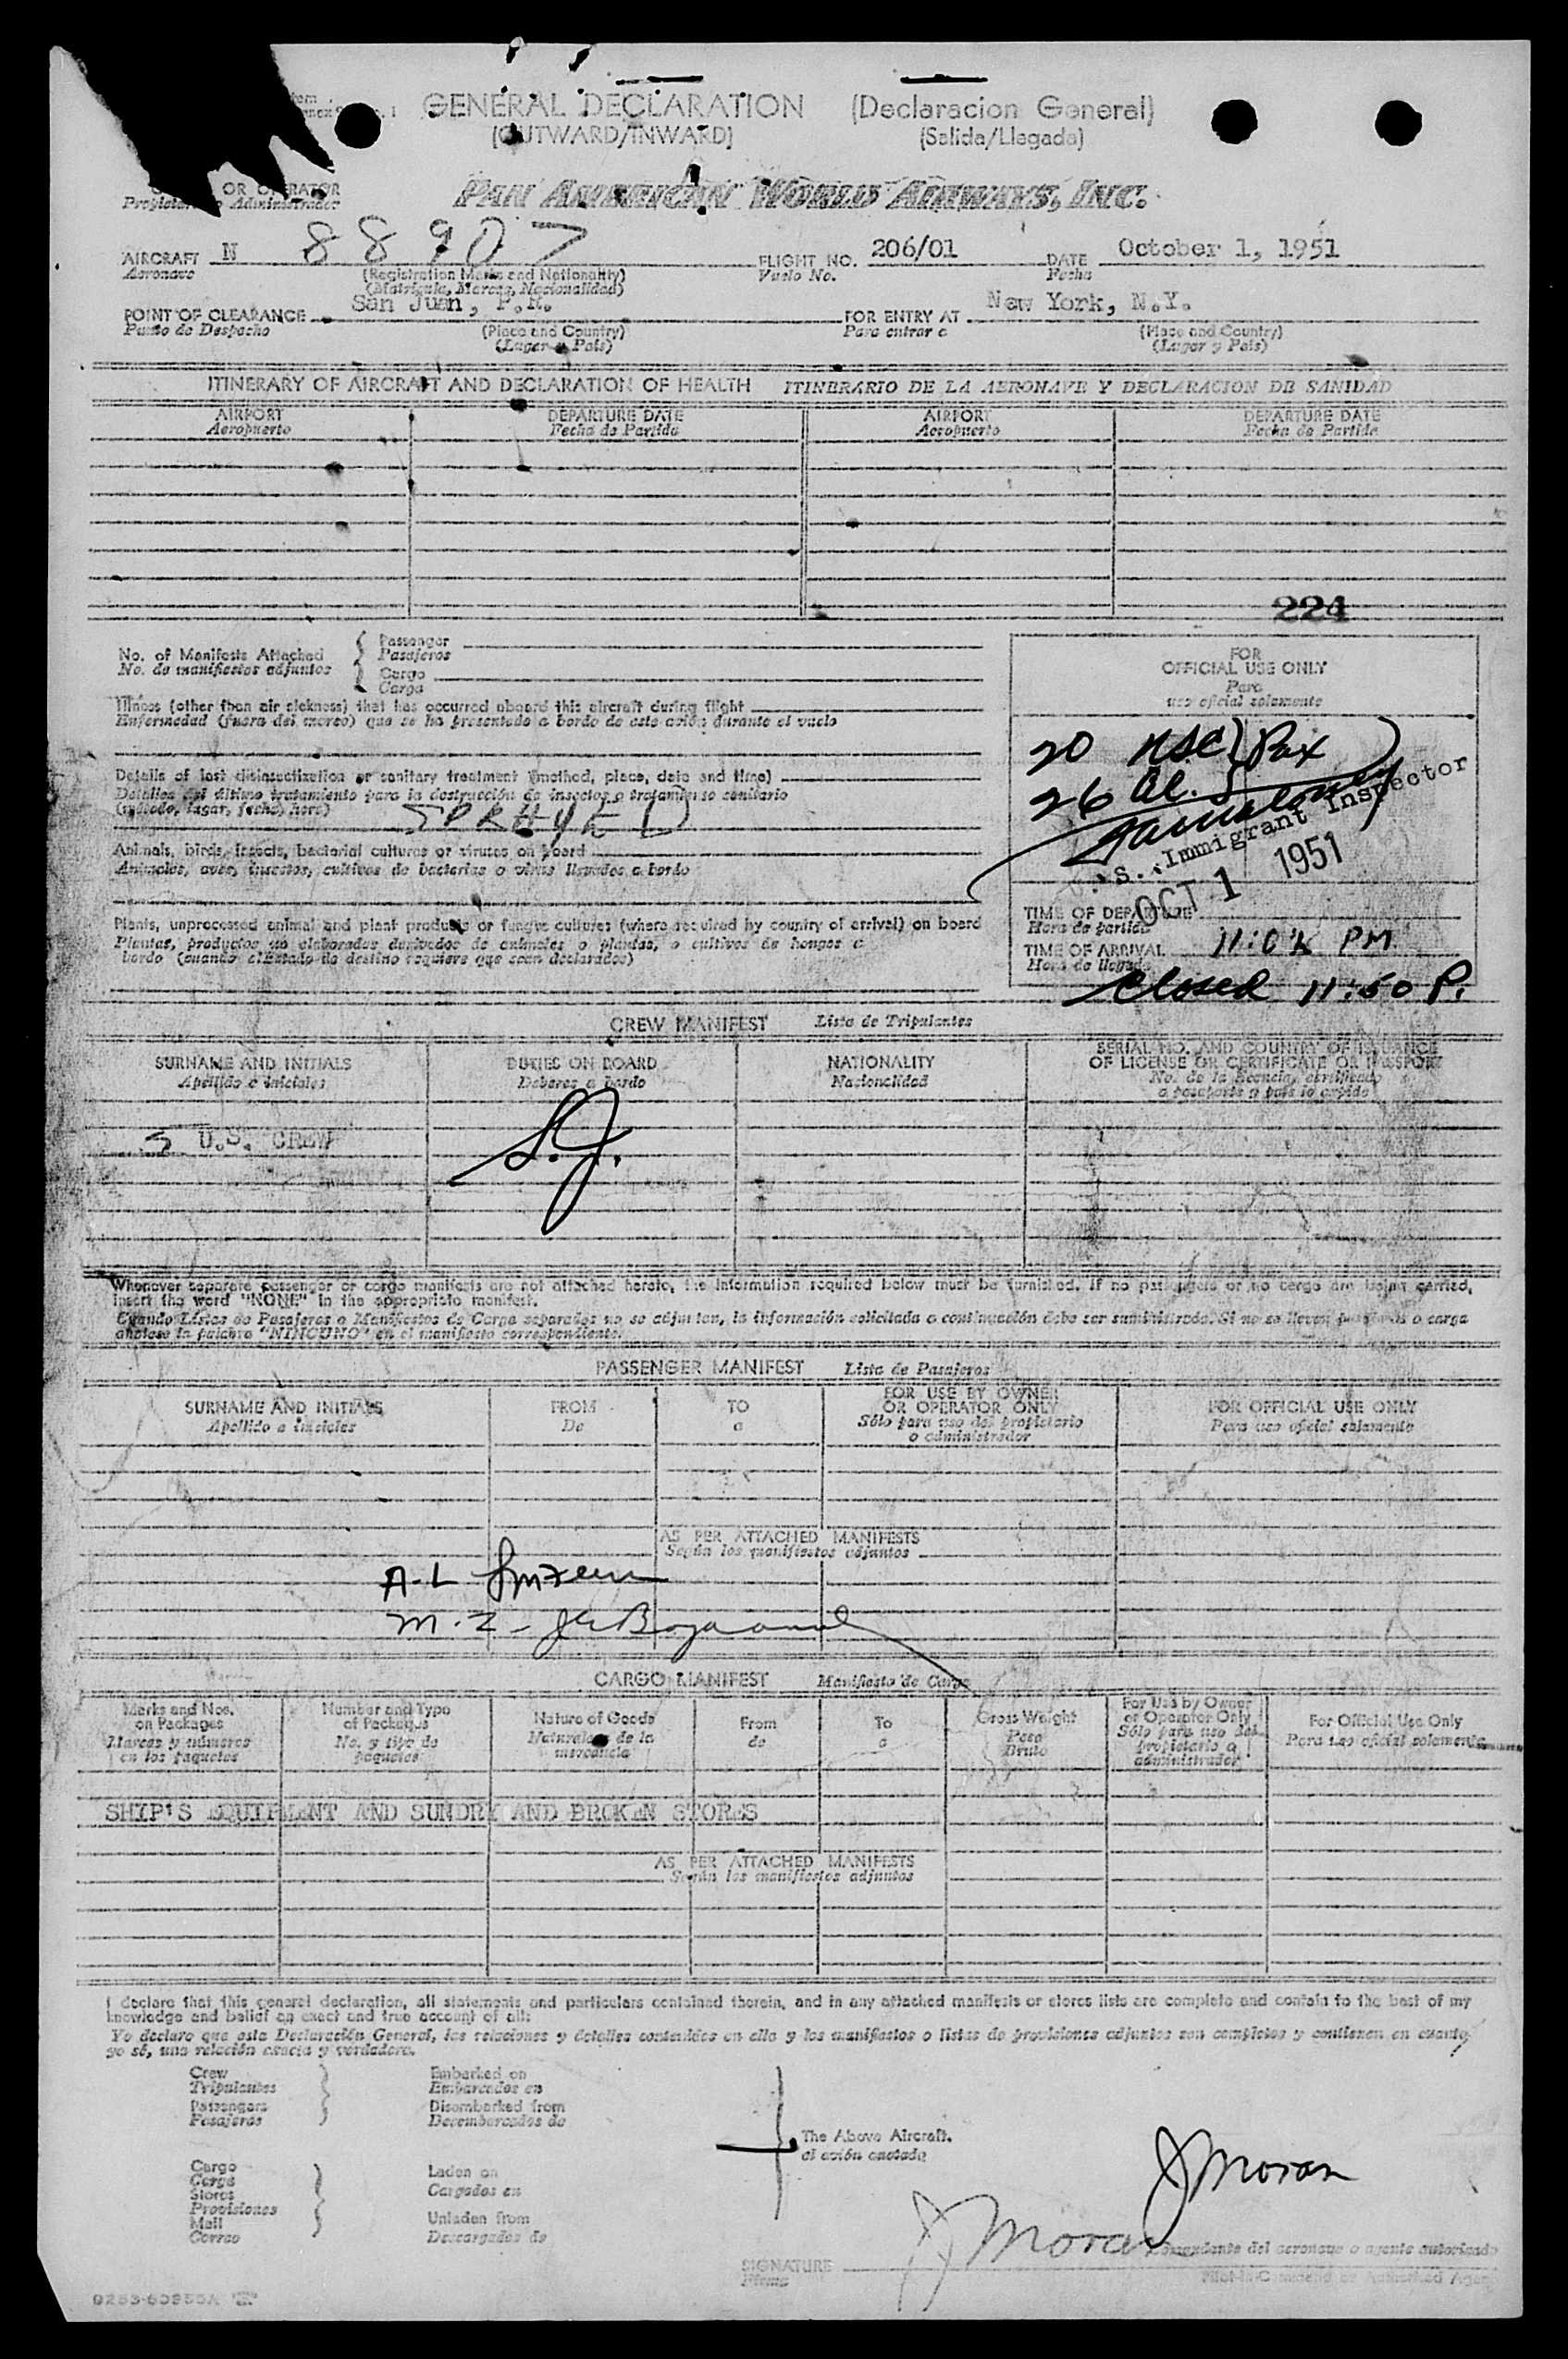 GENERAL DECLARATION (Declaracion General)
(OUTWARD/INWARD) (Salida/Llegada)
OR OPERATOR
Propietario o Administrador
PAN AMERICAN WORLD AIRWAYS, INC.
AIRCRAFT N 88907 FLIGHT NO. 206/01 DATE October 1, 1951
Aeronave (Registration Marks and Nationality) Vuelo No. Fecha
(Matrigula, Marcas, Nacionalidad)
POINT OF CLEARANCE San Juan, P.R. FOR ENTRY AT New York, N.Y.
Punto de Despacho (Place and Country) Para entrar a (Place and Country)
(Lugar y Pais) (Lugar y Pais)
ITINERARY OF AIRCRAFT AND DECLARATION OF HEALTH ITINERARIO DE LA AERONAVE Y DECLARACION DE SANIDAD
AIRPORT DEPARTURE DATE AIRPORT DEPARTURE DATE
Aeropuerto Fecha de Partida Aeropuerto Fecha de Partida
224
No. of Manifests Attached
No. de manifiestos adjuntos
Passenger
Pasajeros
Cargo
Carga
FOR
OFFICIAL USE ONLY
Para
uso oficial solamente
Illness (other than air sickness) that has occurred aboard this aircraft during flight
Enfermedad (fuera del mareo) que se ha presentado a bordo de este avión durante el vuelo
20 USC Pax
26 al.
Immigrant Inspector
OCT 1 1951
Details of last disinsectization or sanitary treatment (method, place, date and time)
Detalles del último tratamiento para la destrucción de insectos o tratamiento sanitario
(método, lugar, fecha, hora)
SPRAYED
Animals, birds, insects, bacterial cultures or viruses on board
Animales, aves, insectos, cultivos de bacterias o virus llevados a bordo
Plants, unprocessed animal and plant products or fungus cultures (where required by country of arrival) on board
Plantas, productos no elaborados derivados de animales o plantas, o cultivos de hongos a
bordo (cuando el Estado de destino requiere que sean declarados)
TIME OF DEPARTURE
Hora de partida
TIME OF ARRIVAL PM
Hora de llegada
Closed 11:50 P.
CREW MANIFEST Lista de Tripulantes
SURNAME AND INITIALS DUTIES ON BOARD NATIONALITY SERIAL NO. AND COUNTRY OF ISSUANCE
OF LICENSE OR CERTIFICATE OR PASSPORT
Apellido e iniciales Deberes a bordo Nacionalidad No. de la licencia, certificado
o pasaporte y pais lo expide
5 U.S. CREW
Whenever separate passenger or cargo manifests are not attached hereto, the information required below must be furnished. If no passengers or no cargo are being carried,
insert the word "NONE" in the appropriate manifest.
Cuando Listas de Pasajeros o Manifiestos de Carga separados no se adjuntan, la información solicitada a continuación debe ser suministrada. Si no se llevan pasajeros o carga
anótese la palabra "NINGUNO" en el manifiesto correspondiente.
PASSENGER MANIFEST Lista de Pasajeros
SURNAME AND INITIALS FROM TO FOR USE BY OWNER
OR OPERATOR ONLY FOR OFFICIAL USE ONLY
Apellido e iniciales De a Sólo para uso del propietario
o administrador Para uso oficial solamente
AS PER ATTACHED MANIFESTS
Según los manifiestos adjuntos
A-L
M-Z
CARGO MANIFEST Manifiesto de Carga
Marks and Nos.
on Packages
Marcas y números
en los paquetes
Number and Type
of Packages
No. y tipo de
paquetes
Nature of Goods
Naturaleza de la
mercancía
From
de
To
a
Gross Weight
Peso
Bruto
For Use by Owner
or Operator Only
Sólo para uso del
propietario o
administrador
For Official Use Only
Para uso oficial solamente
SHIP'S EQUIPMENT AND SUNDRY AND BROKEN STORES
AS PER ATTACHED MANIFESTS
Según los manifiestos adjuntos
I declare that this general declaration, all statements and particulars contained therein, and in any attached manifests or stores lists are complete and contain to the best of my
knowledge and belief an exact and true account of all:
Yo declaro que esta Declaración General, las relaciones y detalles contenidos en ella y los manifiestos o listas de provisiones adjuntos son completos y contienen en cuanto
yo sé, una relación exacta y verdadera.
Crew
Tripulantes
Passengers
Pasajeros
Embarked on
Embarcados en
Disembarked from
Desembarcados de
The Above Aircraft.
al avión anotado
Cargo
Carga
Stores
Provisiones
Mail
Correo
Laden on
Cargados en
Unladen from
Descargados de
J Moran
J Moran
Comandante del aeronave o agente autorizado
SIGNATURE
Firma
Pilot-in-Command or Authorized Agent